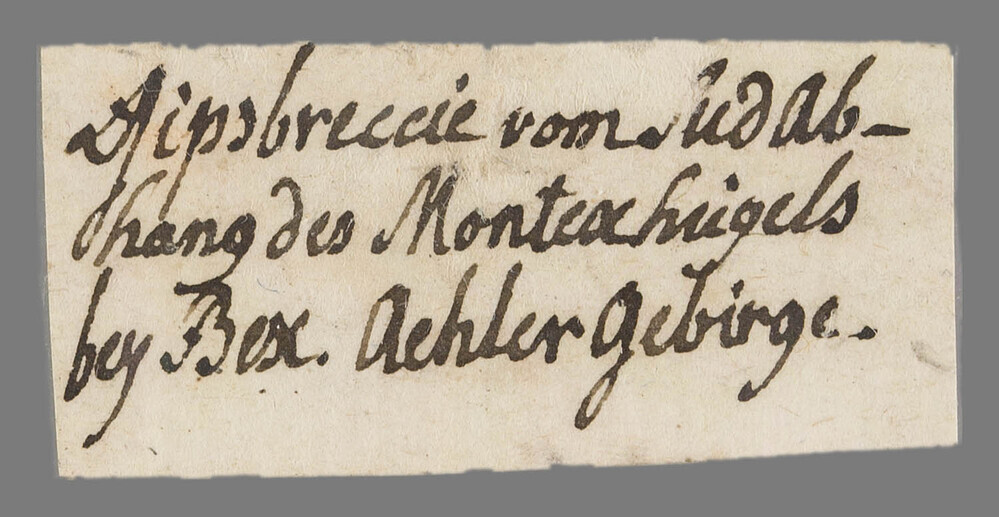 Gipsbreccie vom SüdAb-
hang des Montexhügels
bey Bex. Aehler Gebirge.